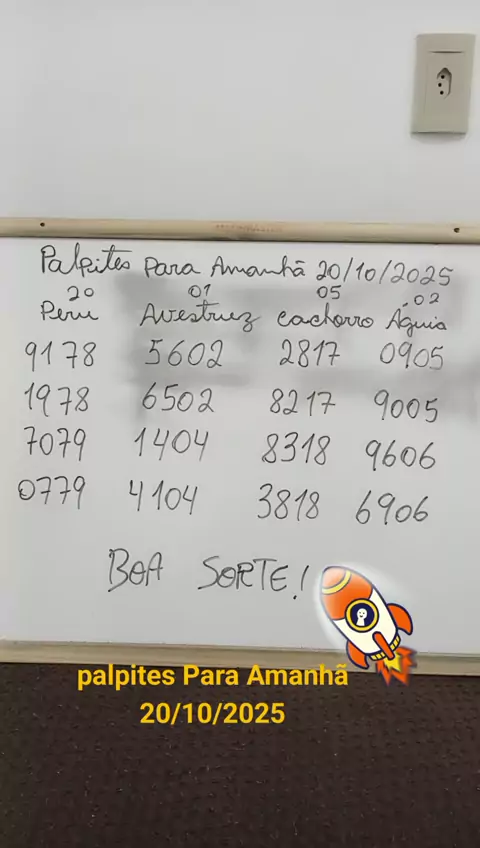 Palpites Para Amanhã 20/10/2025
20 01 05 02
Peru Avestruz cachorro Águia
9178 5602 2817 0905
1978 6502 8217 9005
7079 1404 8318 9606
0779 4104 3818 6906
BOA SORTE!
palpites Para Amanhã
20/10/2025